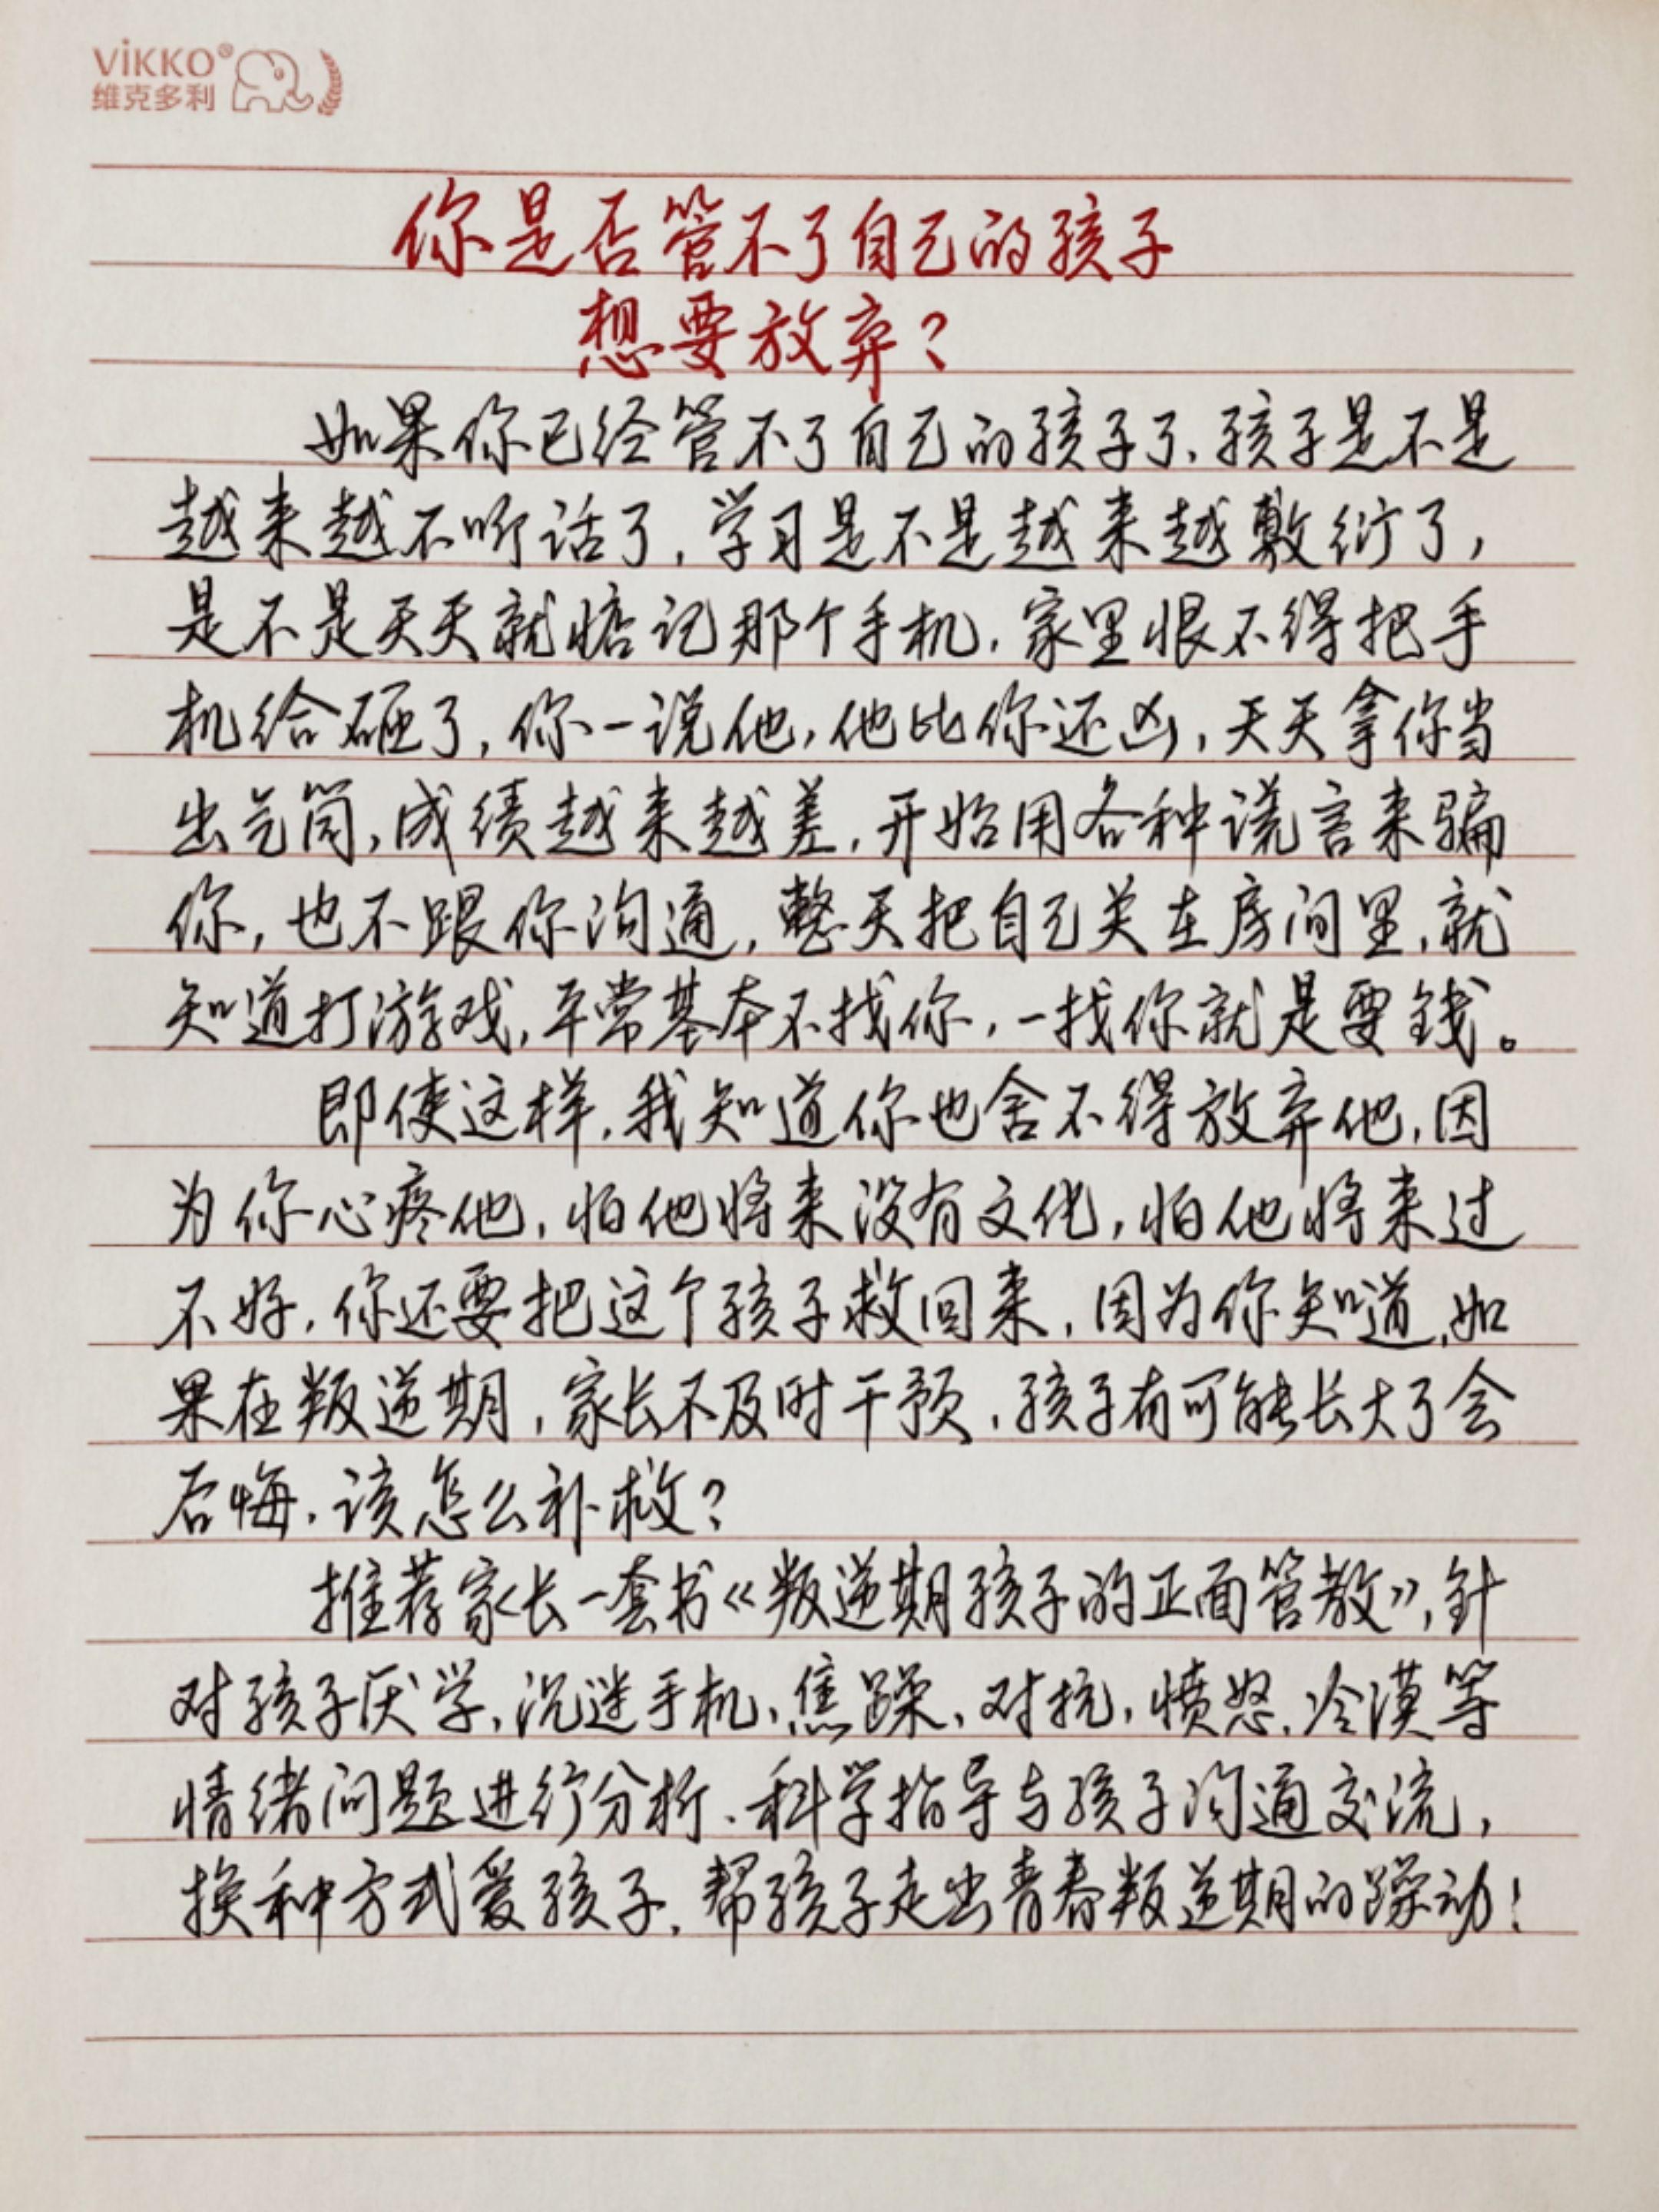 ViKKO®
维克多利
你是否管不了自己的孩子
想要放弃？
如果你已经管不了自己的孩子了，孩子是不是
越来越不听话了，学习是不是越来越敷衍了，
是不是天天就惦记那个手机，家里恨不得把手
机给砸了，你一说他，他比你还凶，天天拿你当
出气筒，成绩越来越差，开始用各种谎言来骗
你，也不跟你沟通，整天把自己关在房间里，就
知道打游戏，平常基本不找你，一找你就是要钱。
即使这样，我知道你也舍不得放弃他，因
为你心疼他，怕他将来没有文化，怕他将来过
不好，你还要把这个孩子救回来，因为你知道，如
果在叛逆期，家长不及时干预，孩子有可能长大了会
后悔，该怎么补救？
推荐家长一套书《叛逆期孩子的正面管教》，针
对孩子厌学，沉迷手机，焦躁，对抗，愤怒，冷漠等
情绪问题进行分析、科学指导与孩子沟通交流，
换种方式爱孩子，帮孩子走出青春叛逆期的躁动！